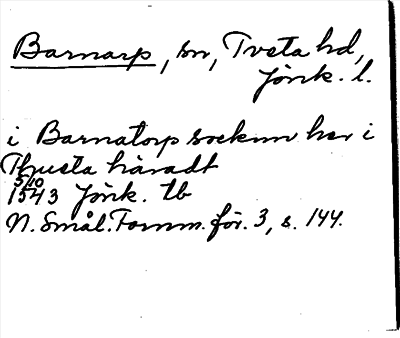 Barnarp, sn, Tveta hd,
Jönk. l.
i Barnatorp socknn her i
Thveta häradt
5/10
1543 Jönk. tb
N. Smål. Fornm. för. 3, s. 144.